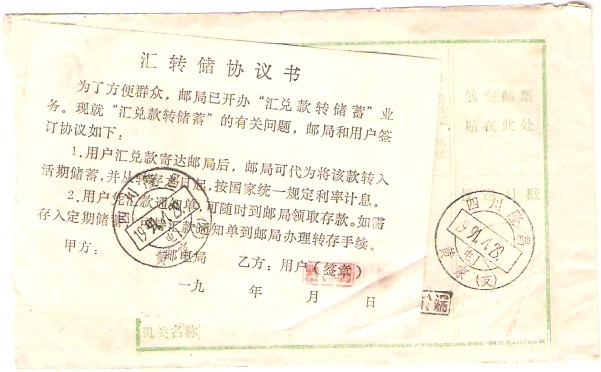 汇转储协议书
为了方便群众，邮局已开办“汇兑款转储蓄”业
务。现就“汇兑款转储蓄”的有关问题，邮局和用户签
订协议如下：
1.用户汇兑款寄达邮局后，邮局可代为将该款转入
活期储蓄，并从转存之日起，按国家统一规定利率计息。
2.用户凭汇款通知单，可随时到邮局领取存款。如需
存入定期储蓄，汇款通知单到邮局办理转存手续。
甲方： 邮电局 乙方：用户（签章）
一九 年 月 日
航空邮票
贴在此处
戳
机关名称
四川
1991.4.29
四川
1991.4.29